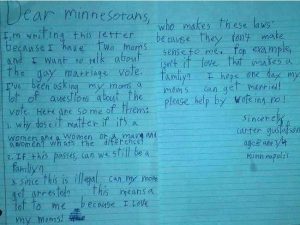 Dear minnesotans,
I'm writing this letter
because I have two moms
and I want to talk about
the gay marriage vote.
I've been asking my moms a
lot of questions about the
vote. Here are some of them:
1. why does it matter if it's a
women and a women or a man and
a women whats the difference?
2. If this passes, can we still be a
family?
3. since this is illegal, can my moms
get arrested? this means a
lot to me because I love
my moms!
who makes these laws
because they don't make
sense to me. For example,
isn't it love that makes a
family? I hope one day my
moms can get married!
please help by voteing no!
Sincerely,
carter
age
minnopolis